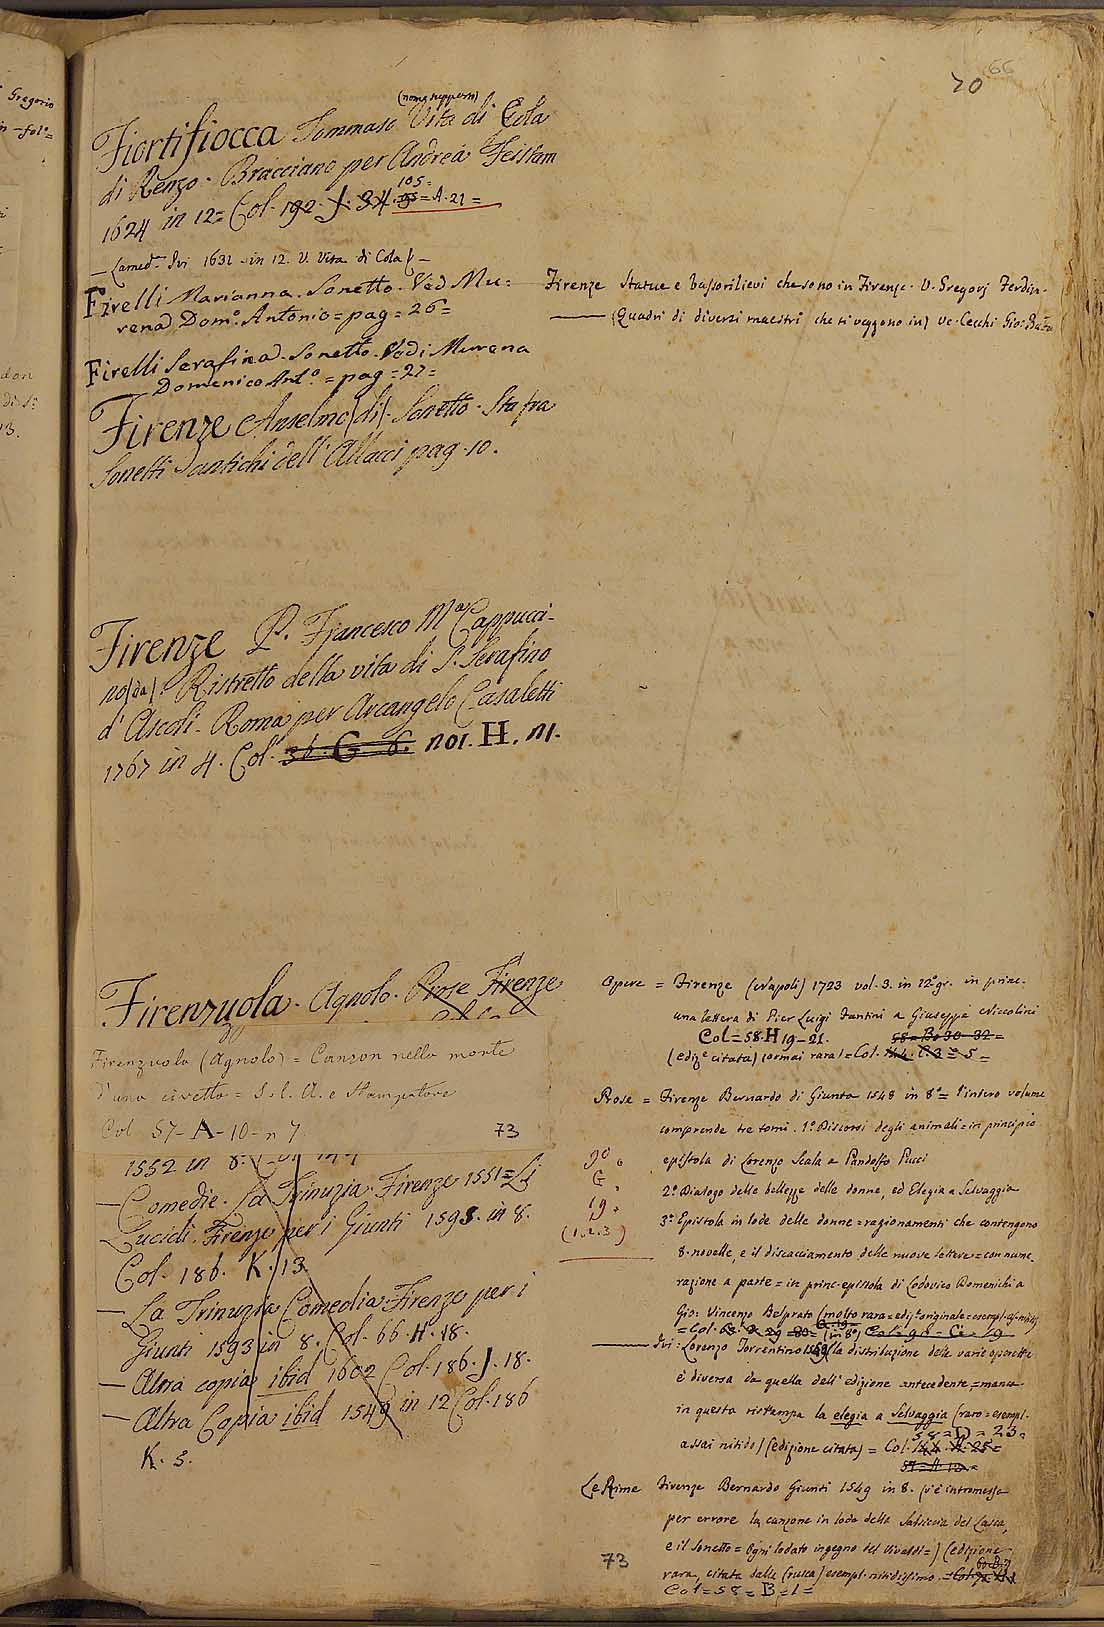 66
20
Gregorio
in-fol.=
Fiortifiocca Tommaso Vita di Cola
di Renzo. Bracciano per Andrea Fei Stam
1624 in 12= Col. 192. J. 34. 105= A. 21=
— Lamed.ª Ivi 1631 in 12. V. Vita di Cola
Firelli Marianna. Sonetto. Ved Mu=
rena Dom.º Antonio= pag= 26=
Firelli Serafina. Sonetto. Vedi Murena
Domenico Ant.º = pag= 27=
Firenze Anselmo (di). Sonetto. Sta fra
Sonetti antichi dell'Allacci pag. 10.
Firenze P. Francesco M.ª Cappucci-
no (da). Ristretto della vita di S. Serafino
d'Ascoli. Roma per Arcangelo Casaletti
1767 in 4. Col. 36. G. 6. 101. H. 11.
Firenzuola. Agnolo. Prose Firenze
Firenzuola (Agnolo) = Canzon nella morte
d'una civetta = S. l. A. e Stampatore
Col 57-A-10-n 7
73
1552 in 8.
— Comedie. La Trinuzia. Firenze 1551= Li
Lucidi. Firenze per i Giunti 1593. in 8.
Col. 186. K. 13.
— La Trinuzia Comedia Firenze per i
Giunti 1593 in 8. Col. 66. H. 18.
— Altra copia ibid 1602 Col. 186. J. 18.
— Altra Copia ibid 1549 in 12 Col. 186
K. 5.
Firenze Statue e bassorilievi che sono in Firenze. V. Gregorj Ferdin.
— (Quadri di diversi maestri che si veggono in) Ve. Cecchi Gio: Ba
Opere = Firenze (Napoli) 1723 vol. 3. in 12º gr. in princ.
una lettera di Pier Luigi Fantini a Giuseppe Niccolini
Col=58.H 19-21. 58=B=30-32=
(ediz.e citata) ormai rara) = Col. 144. C. 3 = 5 =
Prose = Firenze Bernardo di Giunta 1548 in 8º= l'intero volume
comprende tre tomi. 1º Discorsi degli animali = in principio
epistola di Lorenzo Scala a Pandolfo Pucci
2º Dialogo delle bellezze delle donne, ed Elegia a Selvaggia
3º Epistola in lode delle donne = ragionamenti che contengono
8. novelle, e il discacciamento delle nuove lettere = con nume
razione a parte = in princ. epistola di Lodovico Domenichi a
Gio: Vincenzo Belprato (molto rara = ediz.e originale = esempl.
90.
G.
19.
(1.2.3)
— Ivi. Lorenzo Torrentino 1552 (in 8º) (la distribuzione delle varie operette
è diversa da quella dell'edizione antecedente = manca
in questa ristampa la elegia a Selvaggia (raro = esempl.
58=D=23=
assai nitido) (edizione citata) = Col. 144. A. 25=
57=A. 12=
Le Rime Firenze Bernardo Giunti 1549 in 8. (v'è intromessa
per errore la canzone in lode della Salsiccia del Lasca,
e il sonetto = Ogni lodato ingegno del Vivaldi=) (edizione
rara, citata dalla Crusca) esempl. nitidissimo. =
Col=58=B=1=
73